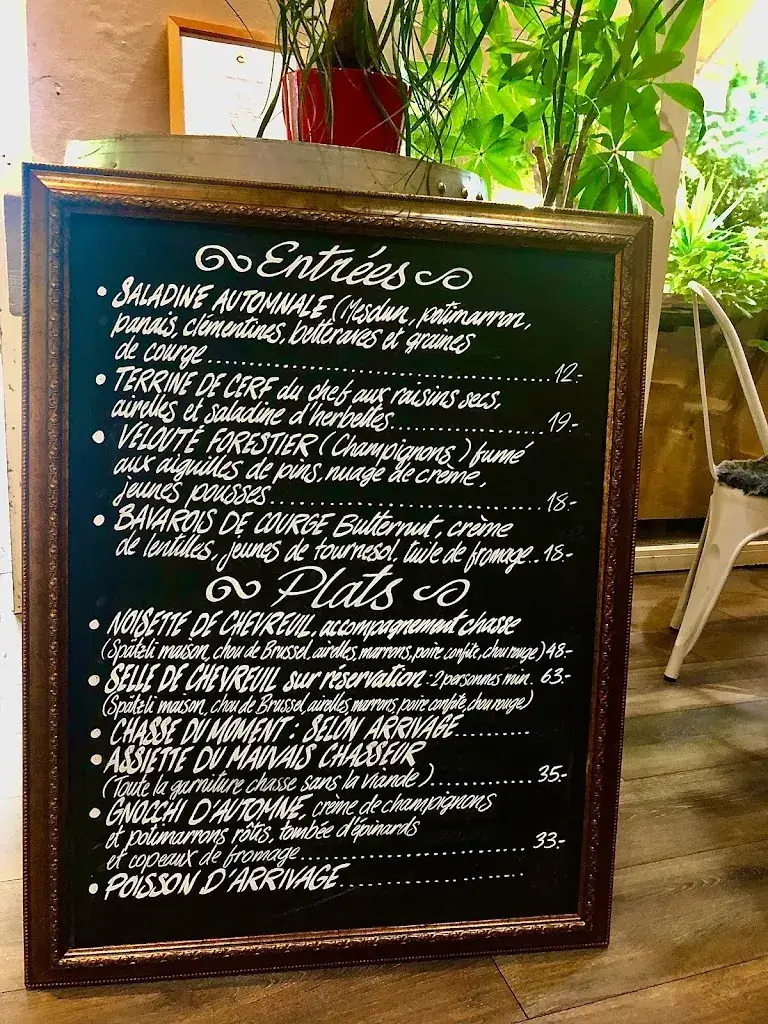 Entrées
• SALADINE AUTOMNALE (Mesclun, potimarron,
panais, clémentines, betteraves et graines
de courge..............................12.-
• TERRINE DE CERF du chef aux raisins secs,
airelles et saladine d'herbettes..............19.-
• VELOUTÉ FORESTIER (Champignons) fumé
aux aiguilles de pins, nuage de crème,
jeunes pousses..............................18.-
• BAVAROIS DE COURGE Butternut, crème
de lentilles, jeunes de tournesol, tuile de fromage..18.-
Plats
• NOISETTE DE CHEVREUIL, accompagnement chasse
(Spätzli maison, chou de Brussel, airelles, marrons, poire confite, chou rouge) 48.-
• SELLE DE CHEVREUIL sur réservation : 2 personnes min. 63.-
(Spätzli maison, chou de Brussel, airelles, marrons, poire confite, chou rouge)
• CHASSE DU MOMENT : SELON ARRIVAGE.........
• ASSIETTE DU MAUVAIS CHASSEUR
(Toute la garniture chasse sans la viande)............35.-
• GNOCCHI D'AUTOMNE, crème de champignons
et potimarrons rôtis, tombée d'épinards
et copeaux de fromage..............................33.-
• POISSON D'ARRIVAGE....................